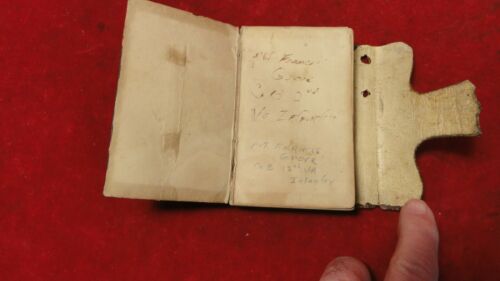 Pvt Francis
Grove
Co B
Va Infantry
Pvt. FRANCIS
GROVE
Co B 12th VA
Infantry